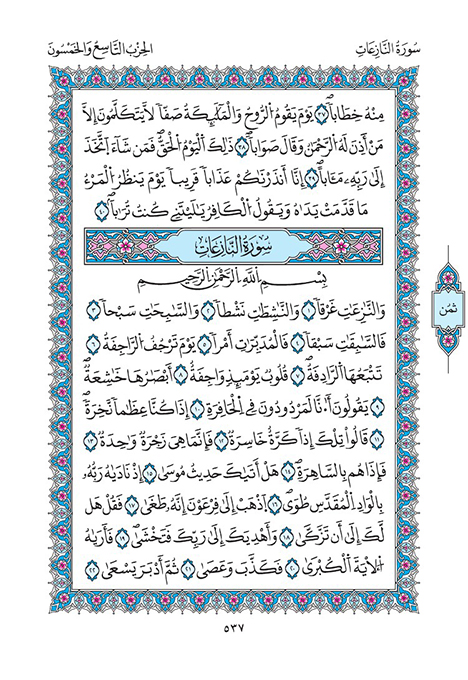 سُورَةُ النَّازِعَاتِ
الحِزْبُ التَّاسِعُ وَالخَمْسُونَ
مِنْهُ خِطَاباً ٣٧ يَوْمَ يَقُومُ الرُّوحُ وَالْمَلَٰٓئِكَةُ صَفّاً لَّا يَتَكَلَّمُونَ إِلَّا
مَنْ أَذِنَ لَهُ الرَّحْمَٰنُ وَقَالَ صَوَاباً ٣٨ ذَٰلِكَ الْيَوْمُ الْحَقُّ فَمَن شَآءَ اتَّخَذَ
إِلَىٰ رَبِّهِ مَـَٔاباً ٣٩ إِنَّآ أَنذَرْنَٰكُمْ عَذَاباً قَرِيباً يَوْمَ يَنظُرُ الْمَرْءُ
مَا قَدَّمَتْ يَدَاهُ وَيَقُولُ الْكَافِرُ يَٰلَيْتَنِي كُنتُ تُرَٰباً ٤٠
سُورَةُ النَّازِعَاتِ
بِسْمِ اللَّهِ الرَّحْمَٰنِ الرَّحِيمِ
وَالنَّٰزِعَٰتِ غَرْقاً ١ وَالنَّٰشِطَٰتِ نَشْطاً ٢ وَالسَّٰبِحَٰتِ سَبْحاً ٣
فَالسَّٰبِقَٰتِ سَبْقاً ٤ فَالْمُدَبِّرَٰتِ أَمْراً ٥ يَوْمَ تَرْجُفُ الرَّاجِفَةُ ٦
تَتْبَعُهَا الرَّادِفَةُ ٧ قُلُوبٌ يَوْمَئِذٍ وَاجِفَةٌ ٨ أَبْصَٰرُهَا خَٰشِعَةٌ
٩ يَقُولُونَ أَ۟نَّا لَمَرْدُودُونَ فِي الْحَافِرَةِ ١٠ إِذَا كُنَّا عِظَٰماً نَّخِرَةً
١١ قَالُوا تِلْكَ إِذاً كَرَّةٌ خَاسِرَةٌ ١٢ فَإِنَّمَا هِيَ زَجْرَةٌ وَٰحِدَةٌ ١٣
فَإِذَا هُم بِالسَّاهِرَةِ ١٤ هَلْ أَتَىٰكَ حَدِيثُ مُوسَىٰ ١٥ إِذْ نَادَىٰهُ رَبُّهُ
بِالْوَادِ الْمُقَدَّسِ طُوَى ١٦ اَذْهَبْ إِلَىٰ فِرْعَوْنَ إِنَّهُ طَغَىٰ ١٧ فَقُلْ هَل
لَّكَ إِلَىٰ أَن تَزَّكَّىٰ ١٨ وَأَهْدِيَكَ إِلَىٰ رَبِّكَ فَتَخْشَىٰ ١٩ فَأَرَىٰهُ
الْأَيَةَ الْكُبْرَىٰ ٢٠ فَكَذَّبَ وَعَصَىٰ ٢١ ثُمَّ أَدْبَرَ يَسْعَىٰ ٢٢
ثُمُن
٥٣٧